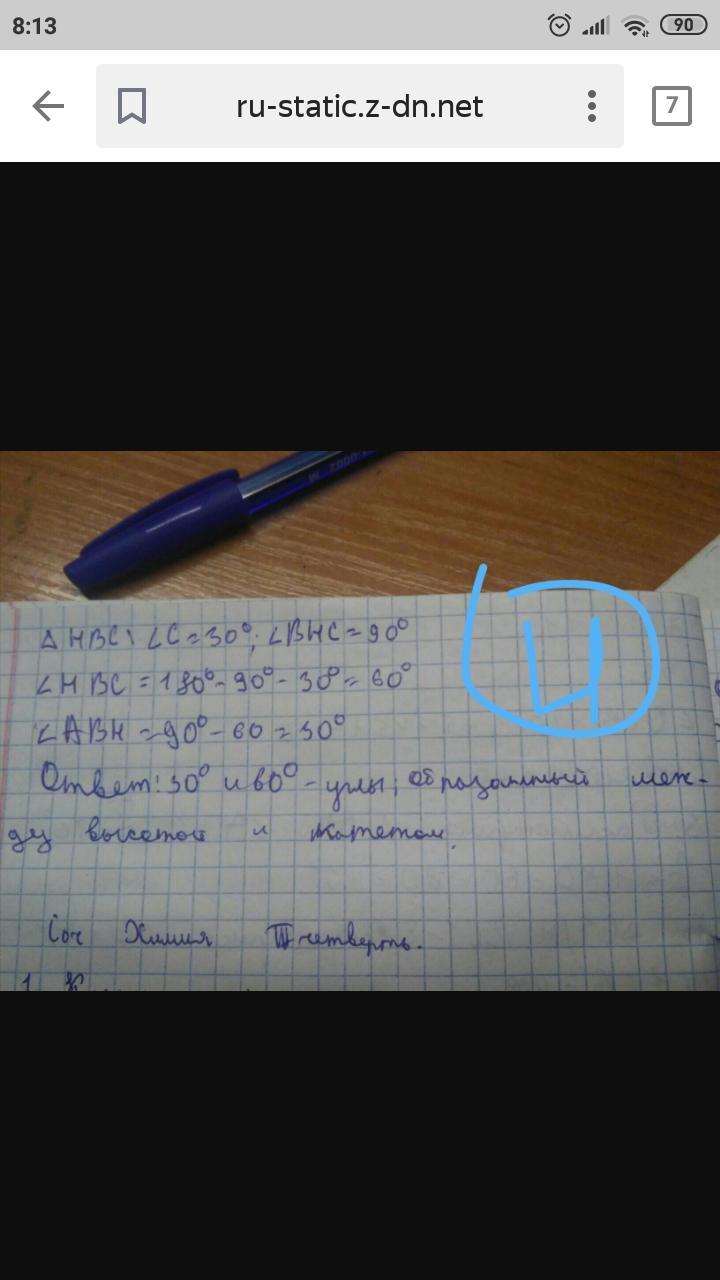 8:13
90
ru-static.z-dn.net
7
4
Δ HBC: ∠C = 30°; ∠BHC = 90°
∠HBC = 180° - 90° - 30° = 60°
∠ABH = 90° - 60 = 30°
Ответ: 30° и 60° - углы, образанный меж-
ду высотой и катетом.
Химия III четверть.
1.